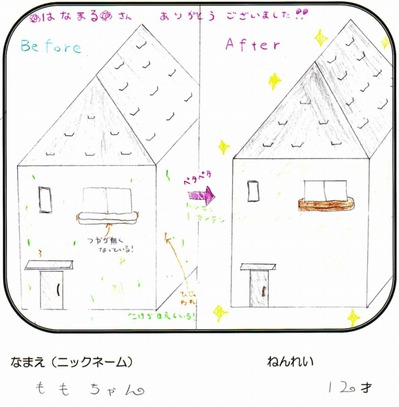 はなまるさん ありがとうございました!!
Before
After
ペタペタ
ツヤが無く
なっている!
ひび
われ
こけが はえている!
なまえ(ニックネーム)
ももちゃん
ねんれい
12才